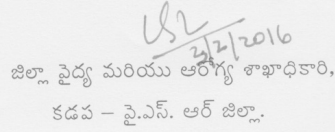 2/2/2016
జిల్లా వైద్య మరియు ఆరోగ్య శాఖాధికారి,
కడప – వై.ఎస్. ఆర్ జిల్లా.